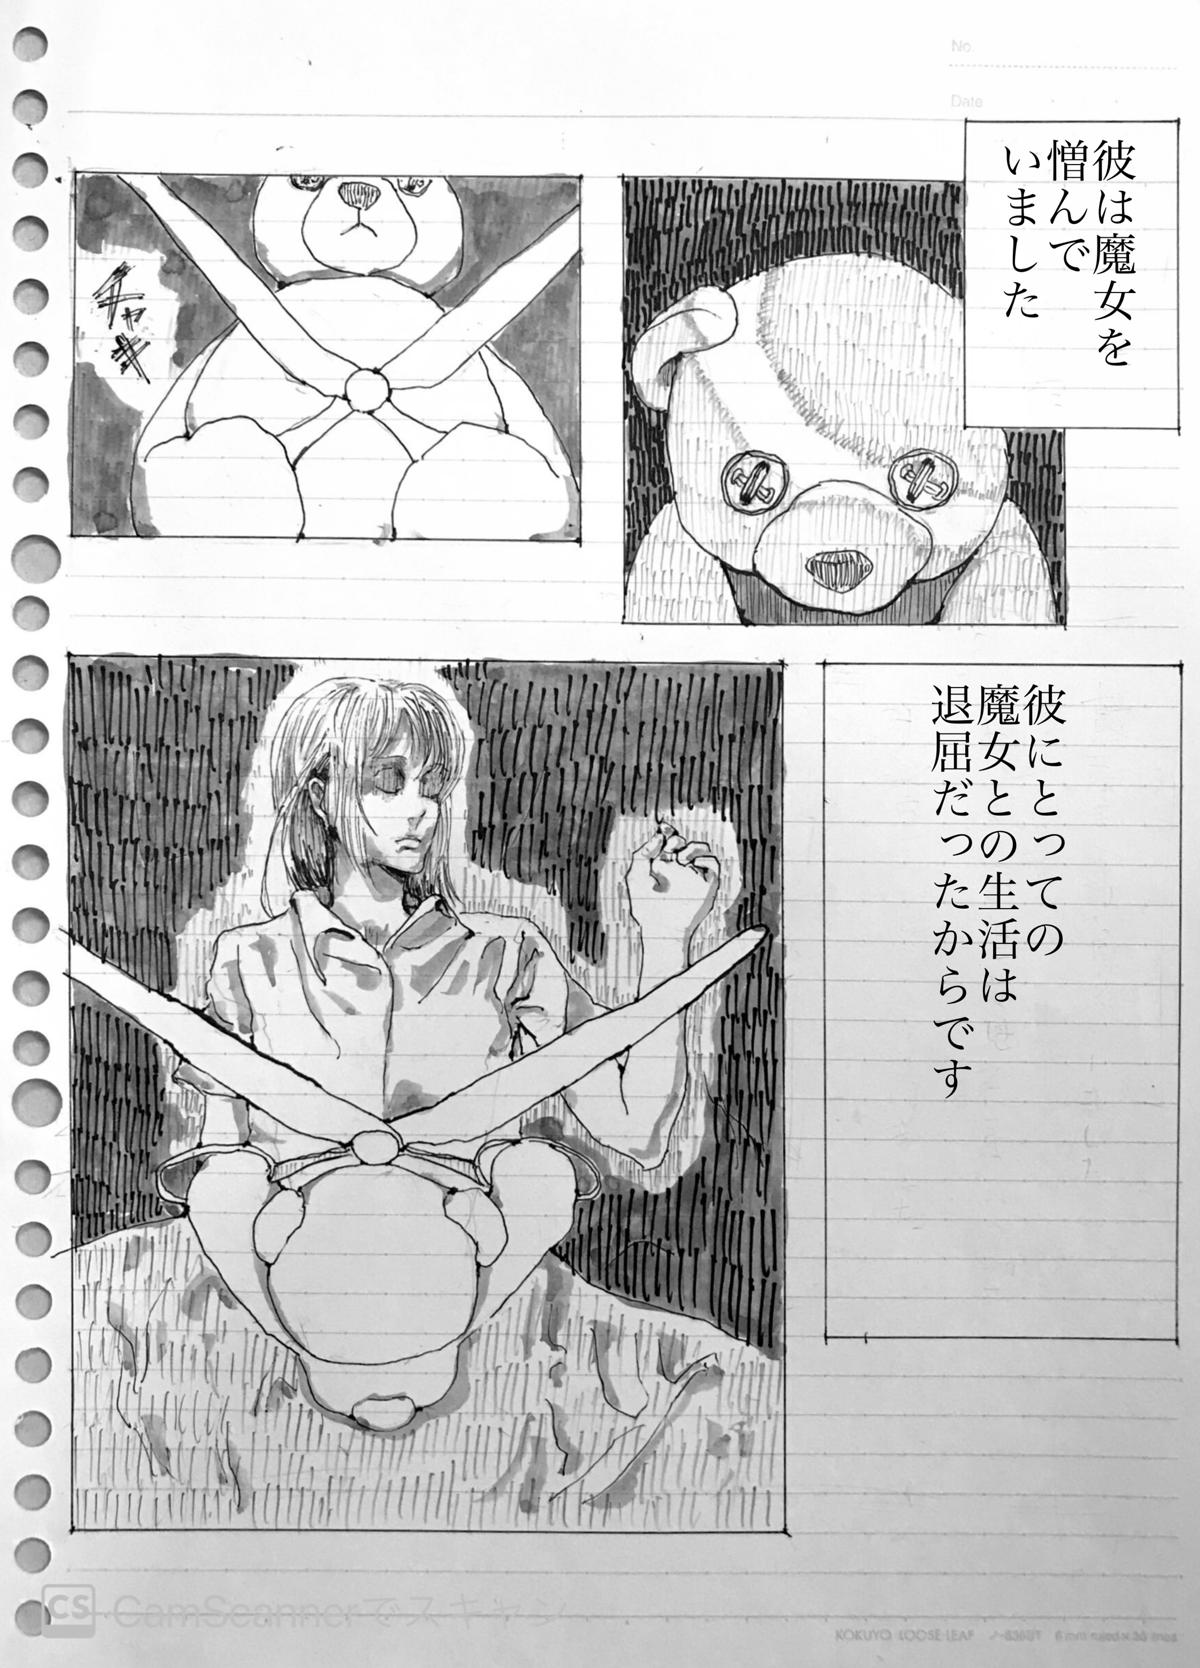 No.
Date
彼は魔女を
憎んで
いました
チャキ
彼にとっての
魔女との生活は
退屈だったからです
CS CamScannerでスキャン
KOKUYO LOOSE-LEAF ノ-836BT 6 mm ruled × 36 lines